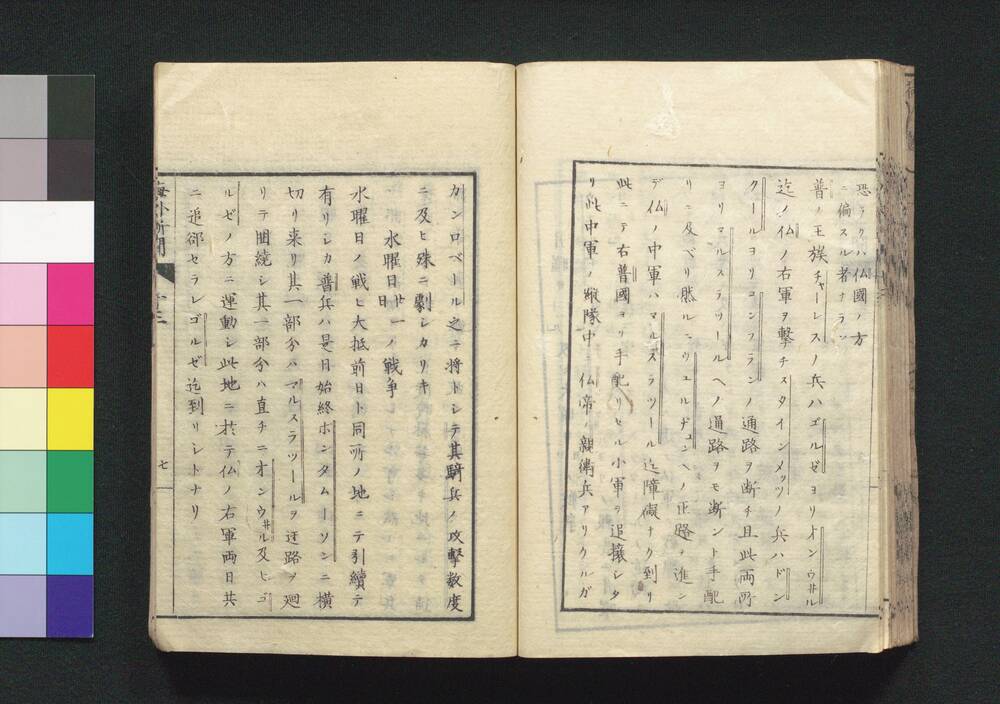 恐ラクハ仏國ノ方
ニ偏スル者ナラン
普ノ王族チャーレスノ兵ハゴルゼヨリオンウ井ル
迄ノ仏ノ右軍ヲ撃チスタインメッツノ兵ハドン
クールヨリコンフランノ通路ヲ断チ且此両所
ヨリマルスラツールヘノ通路ヲモ断ント手配
リニ及ベリ然ルニウェルヂュンヘノ正路ヲ進ン
デ仏ノ中軍ハマルスラツール迄障礙ナク到リ
此ニテ右普國ヨリ手配リセル小軍ヲ追攘シタ
リ此中軍ノ縦隊中ニ仏帝ノ親衛兵アリクルガ
カンロベール之ニ将トシテ其騎兵ノ攻撃数度
ニ及ヒ殊ニ劇シカリキ
水曜日廿一日ノ戦争
水曜日ノ戦ヒ大抵前日ト同所ノ地ニテ引續テ
有リシカ普兵ハ是日始終ホンタムーソンニ横
切リ来リ其一部分ハマルスラツールヲ迂路ヲ廻
リテ囲繞シ其一部分ハ直チニオンウ井ル及ヒゴ
ルゼノ方ニ運動シ此地ニ於テ仏ノ右軍両日共
ニ追郤セラレゴルゼ迄到リシトナリ
海外新聞
七